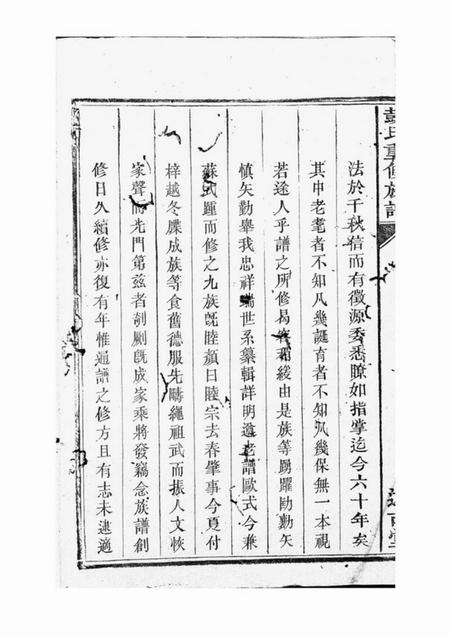 彭氏重修族譜
法於千秋信而有徵源委悉瞭如指掌迄今六十年矣
其中老耄者不知凡幾誕育者不知凡幾保無一本視
若途人乎譜之所修曷容緩由是族等踴躍勷勷矣
慎矣勤舉我忠祥端世系纂輯詳明遵老譜歐式今兼
蘇式踵而修之九族旣睦顏曰睦宗去春肇事今夏付
梓越冬牒成族等食舊德服先疇繩祖武而振人文恢
家聲而光門第茲者剞劂旣成家乘將發竊念族譜創
修日久續修亦復有年惟通譜之修方且有志未逮適